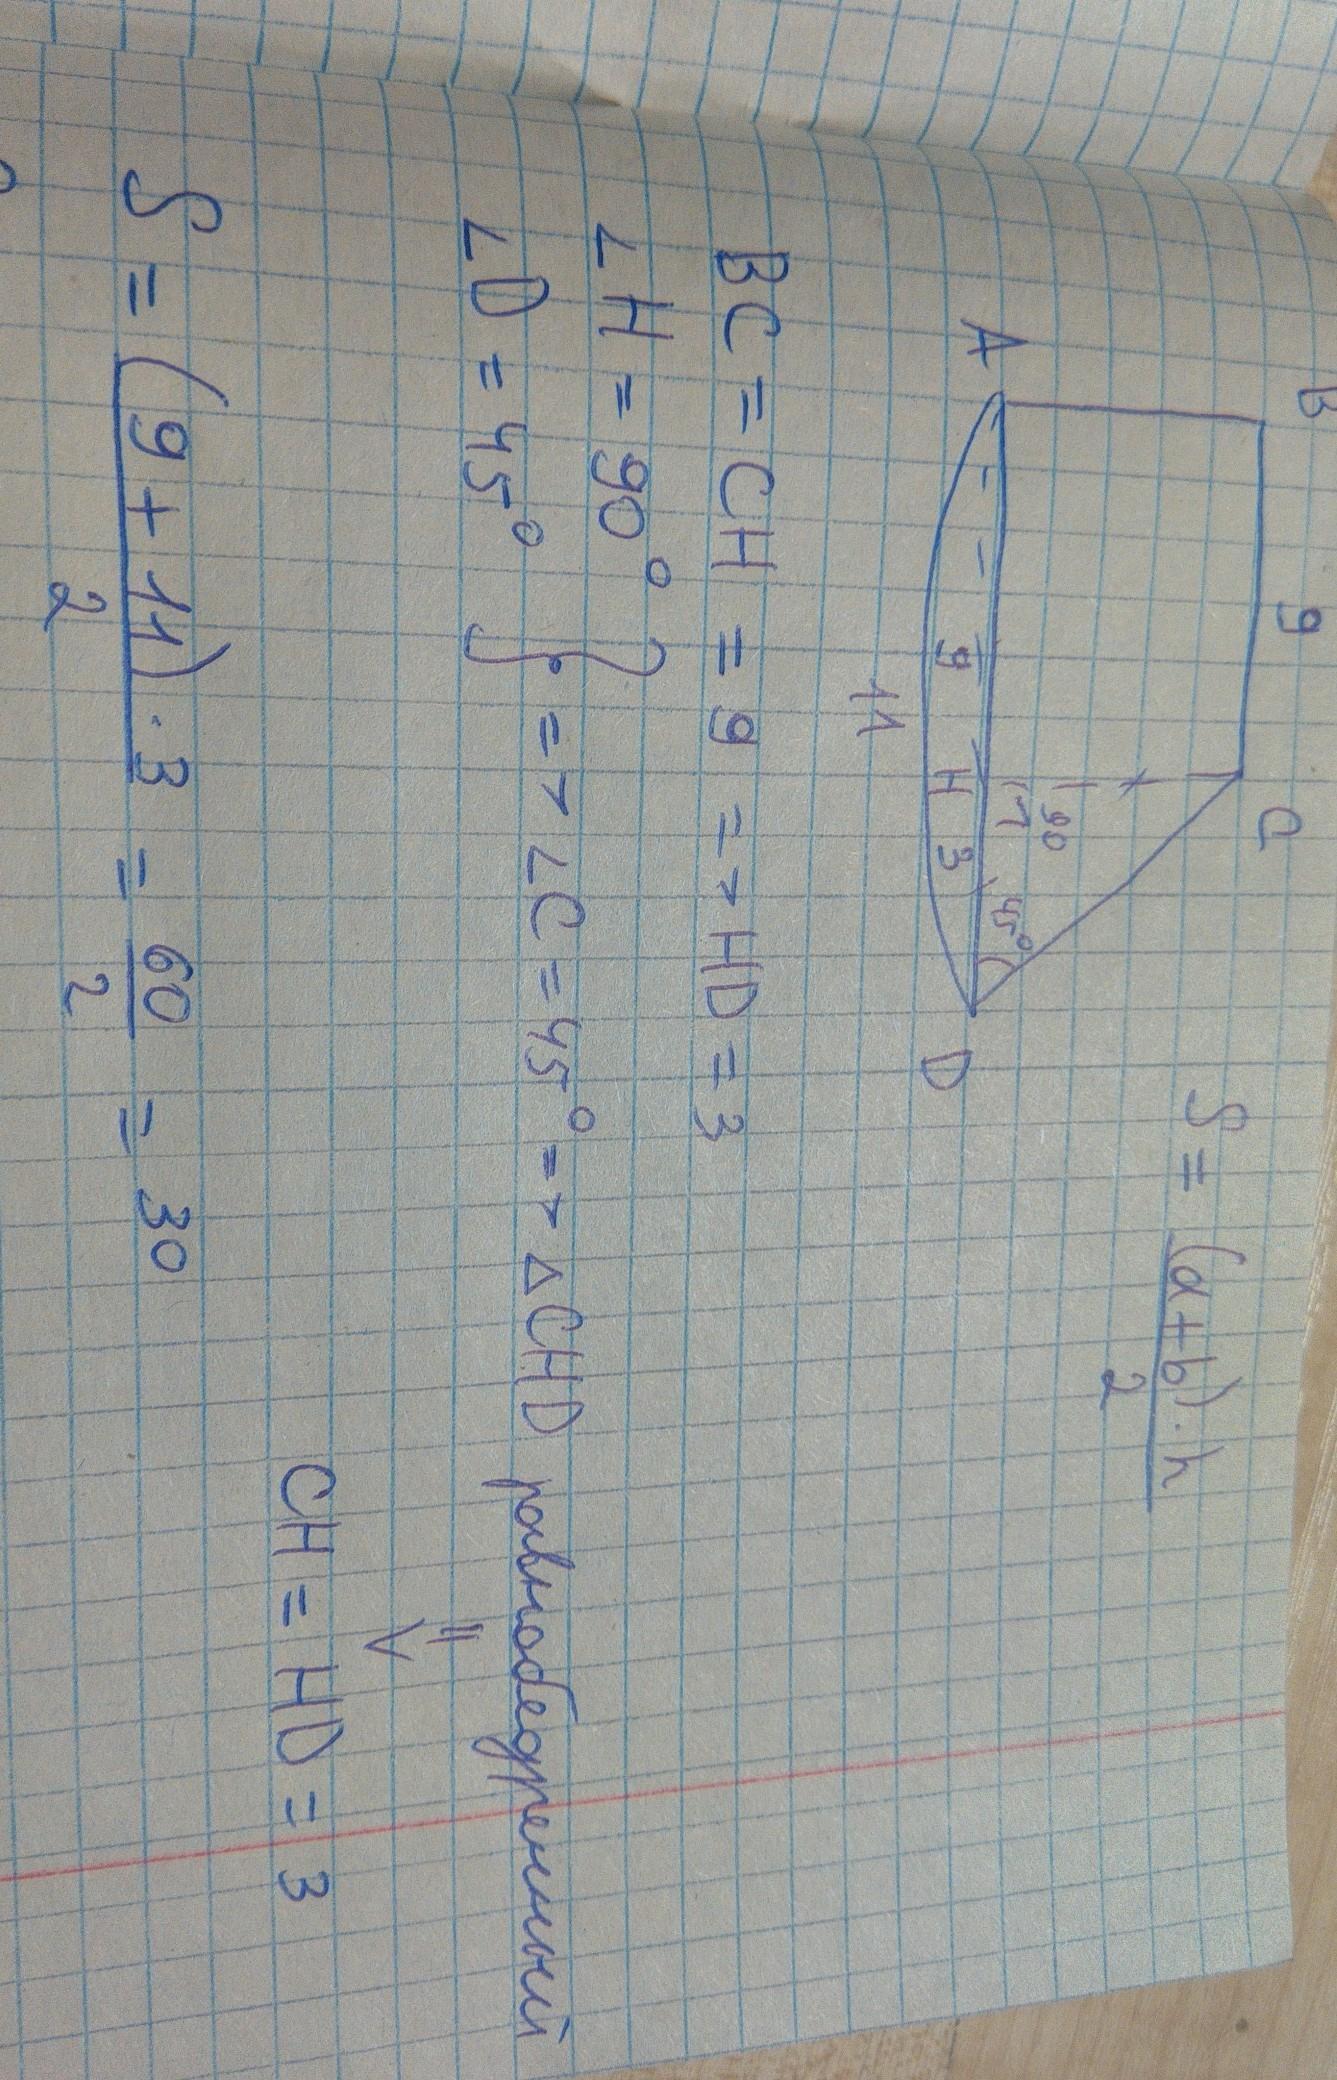 B 9 C
S = (a+b)·h / 2
90
45°
A 9 H 3 D
11
BC = CH = 9 => HD = 3
∠H = 90°
∠D = 45° } => ∠C = 45° => △CHD равнобедренный
=>
CH = HD = 3
S = (9 + 11) · 3 / 2 = 60 / 2 = 30